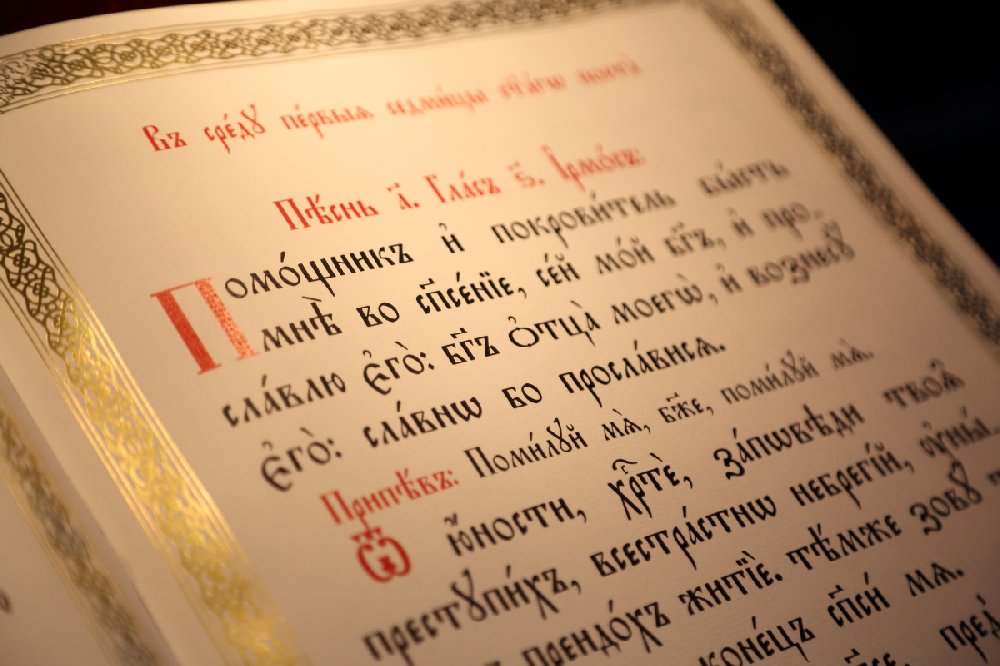 Въ сре́дꙋ пе́рвыѧ седми́цы ст҃а́гѡ поста̀
Пѣ́снь а҃. Гла́съ ѕ҃. Ірмо́съ:
Помо́щникъ и҆ покрови́тель бы́сть
мнѣ̀ во сп҃се́нїе, се́й мо́й бг҃ъ, и҆ про-
сла́влю є҆го̀: бг҃ъ ѻ҆тца̀ моегѡ̀, и҆ вознесꙋ̀
є҆го̀: сла́внѡ бо просла́висѧ.
Припѣ́въ: Поми́лꙋй мѧ̀, бж҃е, поми́лꙋй мѧ̀.
Ѿ ю҆́ности, хрⷭ҇тѐ, за́пѡвѣди твоѧ̑
престꙋпи́хъ, всестра́стнѡ небрегі́й, ᲂу҆ны́-
преидо́хъ житїѐ. тѣ́мже зовꙋ̀
коне́цъ сп҃си́ мѧ.